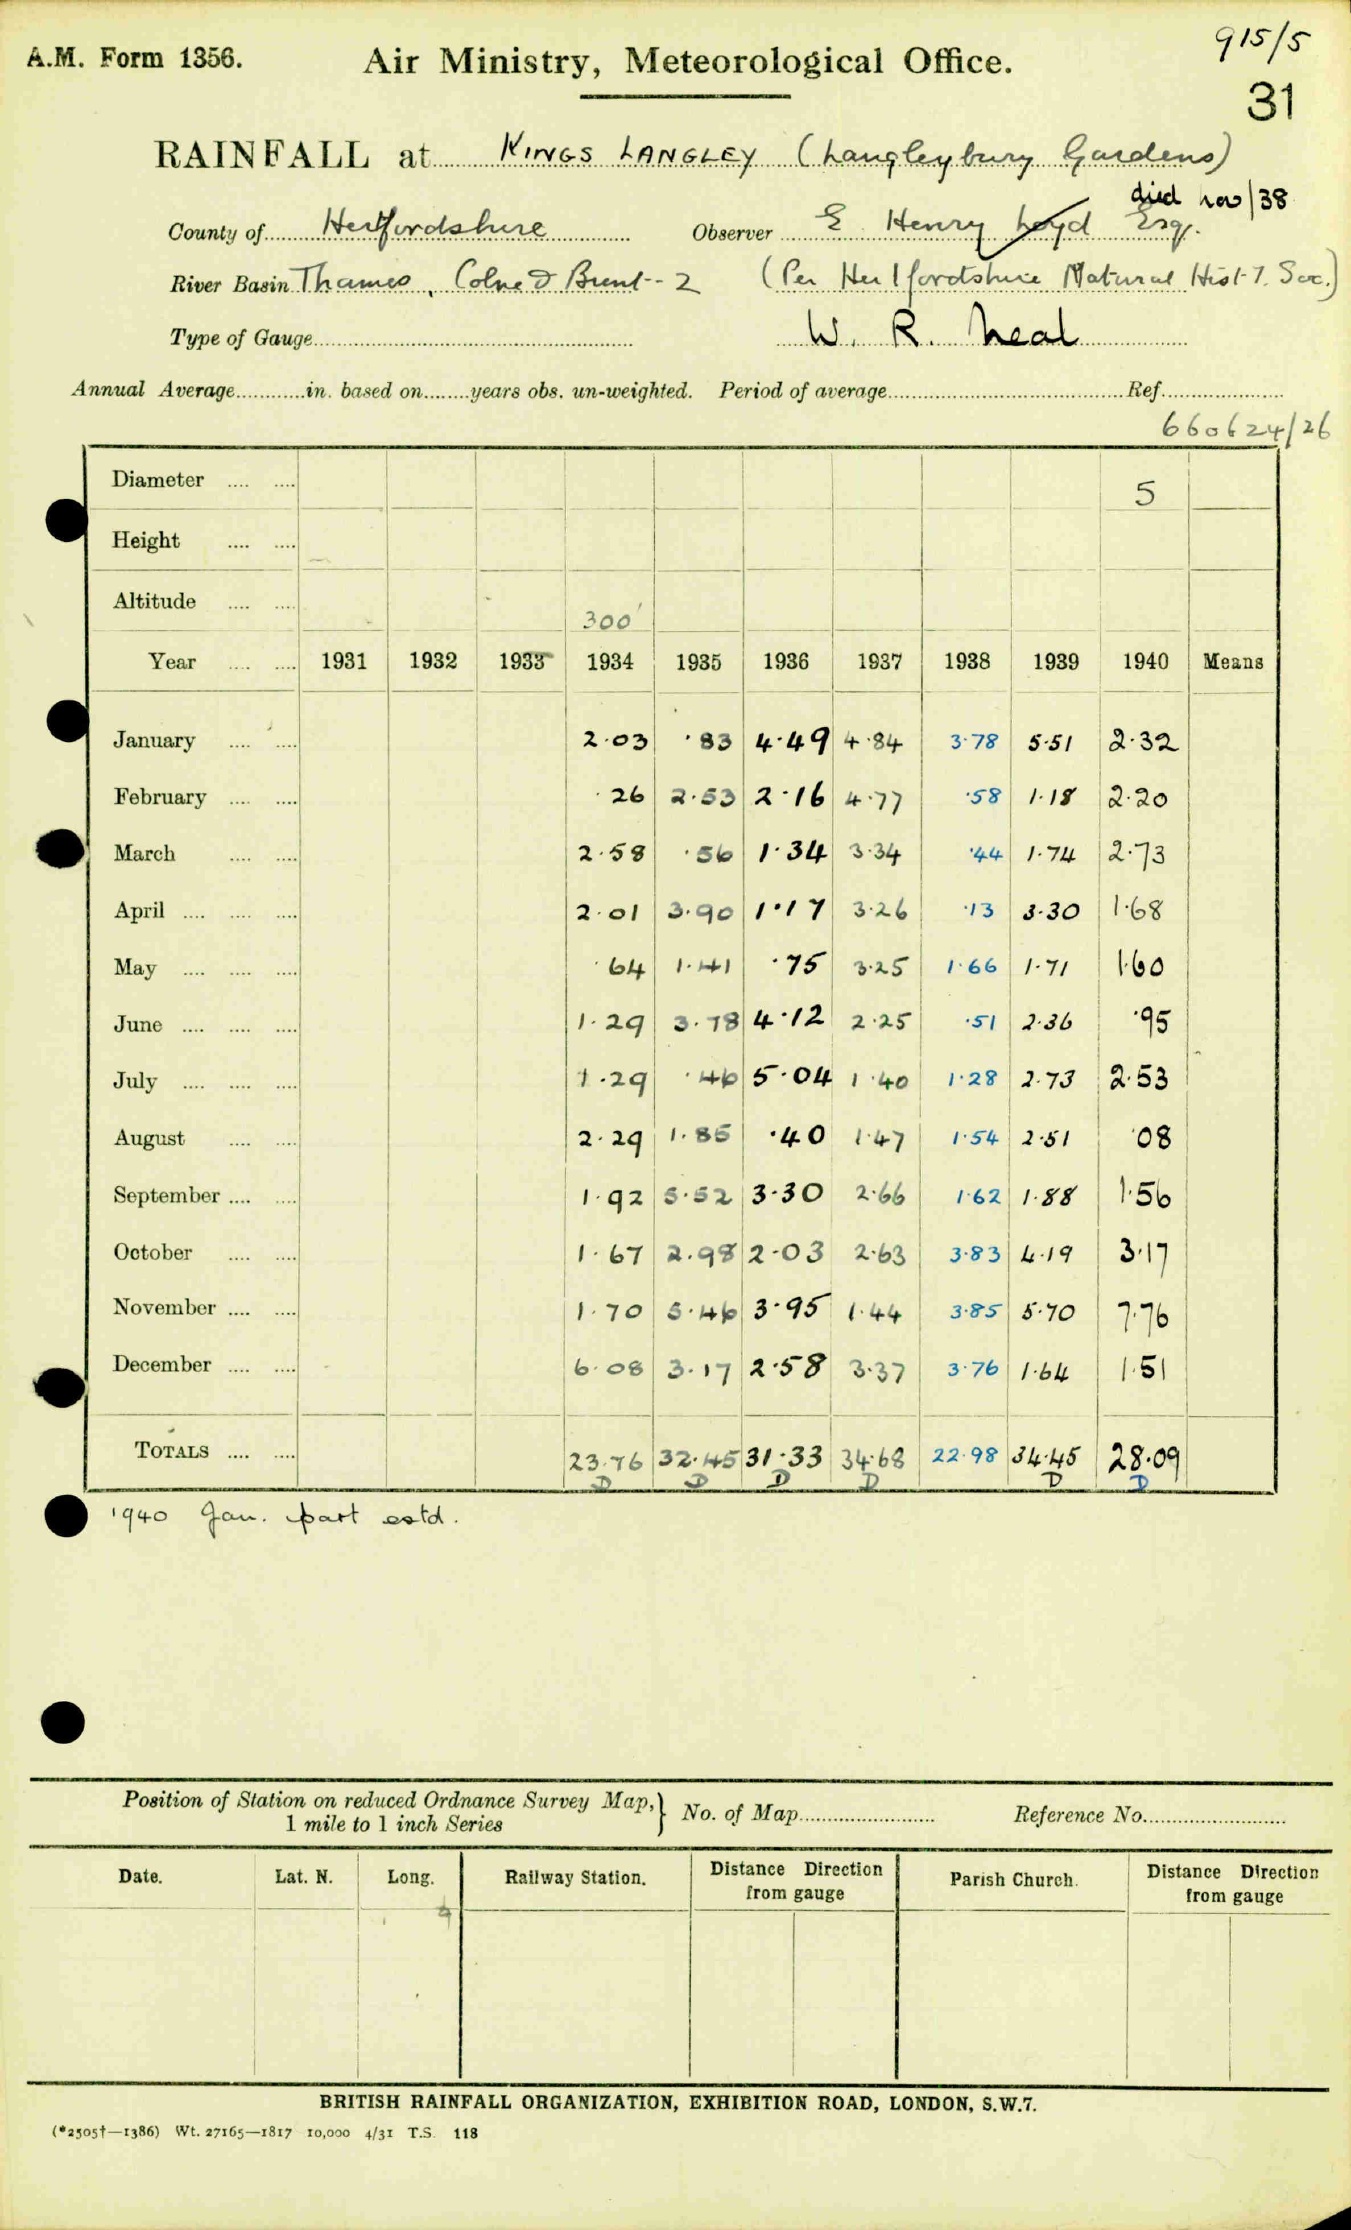 915/5
A.M. Form 1356. Air Ministry, Meteorological Office.
31
RAINFALL at KINGS LANGLEY (Langleybury Gardens)
died Nov/38
County of Hertfordshire Observer E Henry Loyd Esq.
River Basin Thames, Colne & Brent -- 2 (Per Hertfordshire Natural Hist-y. Soc.)
Type of Gauge W. R. Neal
Annual Average in. based on years obs. un-weighted. Period of average Ref.
660624/26
Diameter .... .... 5
Height .... ....
Altitude .... .... 300'
Year .... .... 1931 1932 1933 1934 1935 1936 1937 1938 1939 1940 Means
January .... .... 2.03 .83 4.49 4.84 3.78 5.51 2.32
February .... .... .26 2.53 2.16 4.77 .58 1.18 2.20
March .... .... 2.58 .56 1.34 3.34 .44 1.74 2.73
April .... .... .... 2.01 3.90 1.17 3.26 .13 3.30 1.68
May .... .... .... .64 1.41 .75 3.25 1.66 1.71 1.60
June .... .... .... 1.29 3.78 4.12 2.25 .51 2.36 .95
July .... .... .... 1.29 .46 5.04 1.40 1.28 2.73 2.53
August .... .... 2.29 1.85 .40 1.47 1.54 2.51 .08
September .... .... 1.92 5.52 3.30 2.66 1.62 1.88 1.56
October .... .... 1.67 2.98 2.03 2.63 3.83 4.19 3.17
November .... .... 1.70 5.46 3.95 1.44 3.85 5.70 7.76
December .... .... 6.08 3.17 2.58 3.37 3.76 1.64 1.51
TOTALS .... .... 23.76 32.45 31.33 34.68 22.98 34.45 28.09
D D D D D D
1940 Jan. part estd.
Position of Station on reduced Ordnance Survey Map, } No. of Map Reference No.
1 mile to 1 inch Series
Date. Lat. N. Long. Railway Station. Distance Direction from gauge Parish Church. Distance Direction from gauge
BRITISH RAINFALL ORGANIZATION, EXHIBITION ROAD, LONDON, S.W.7.
(*2505†—1386) Wt. 27165—1817 10,000 4/31 T.S. 118